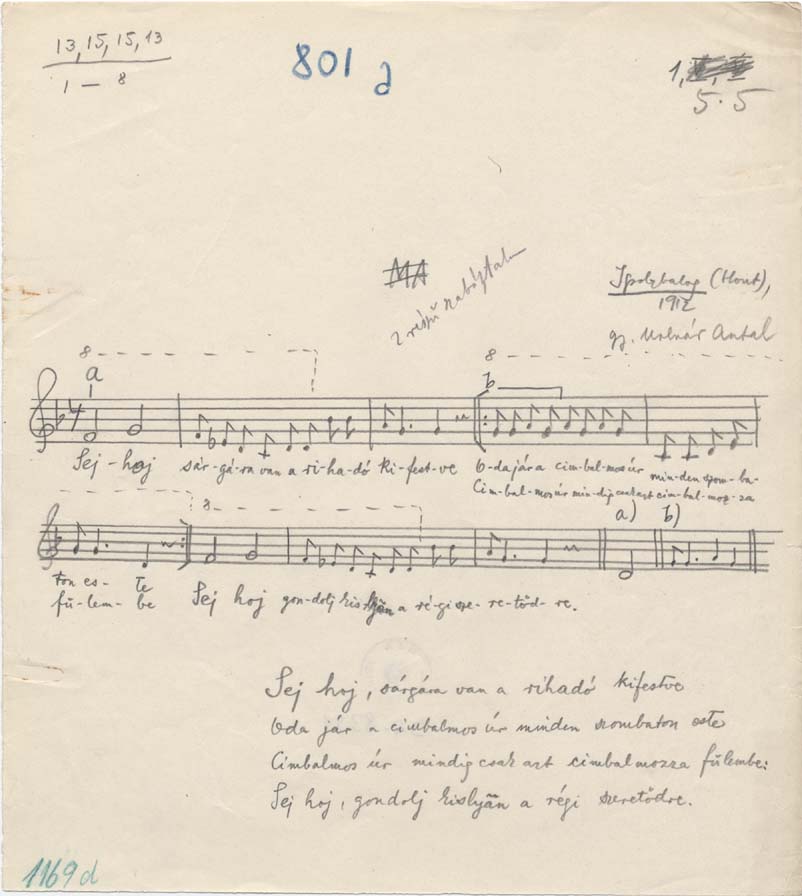 13, 15, 15, 13
1 — 8
801 d
1,
5. 5
MA
2 részű
Ipolybalog (Hont),
1912
gy. Molnár Antal
8
8
a
b
Sej - hoj sár-gá-ra van a ri-ha-dó ki-fest-ve O-da jár a cim-bal-mos úr min-den szom-ba-
Cim-bal-mos úr min-dig csak azt cim-bal-moz-za
8
a) b)
ton es- te Sej hoj gon-dolj kis lyän a ré-gi sze-re-tőd-re.
fü-lem-be
Sej hoj, sárgára van a rihadó kifestve
Oda jár a cimbalmos úr minden szombaton este
Cimbalmos úr mindig csak azt cimbalmozza fülembe:
Sej hoj, gondolj kislyän a régi szeretődre.
1169 d